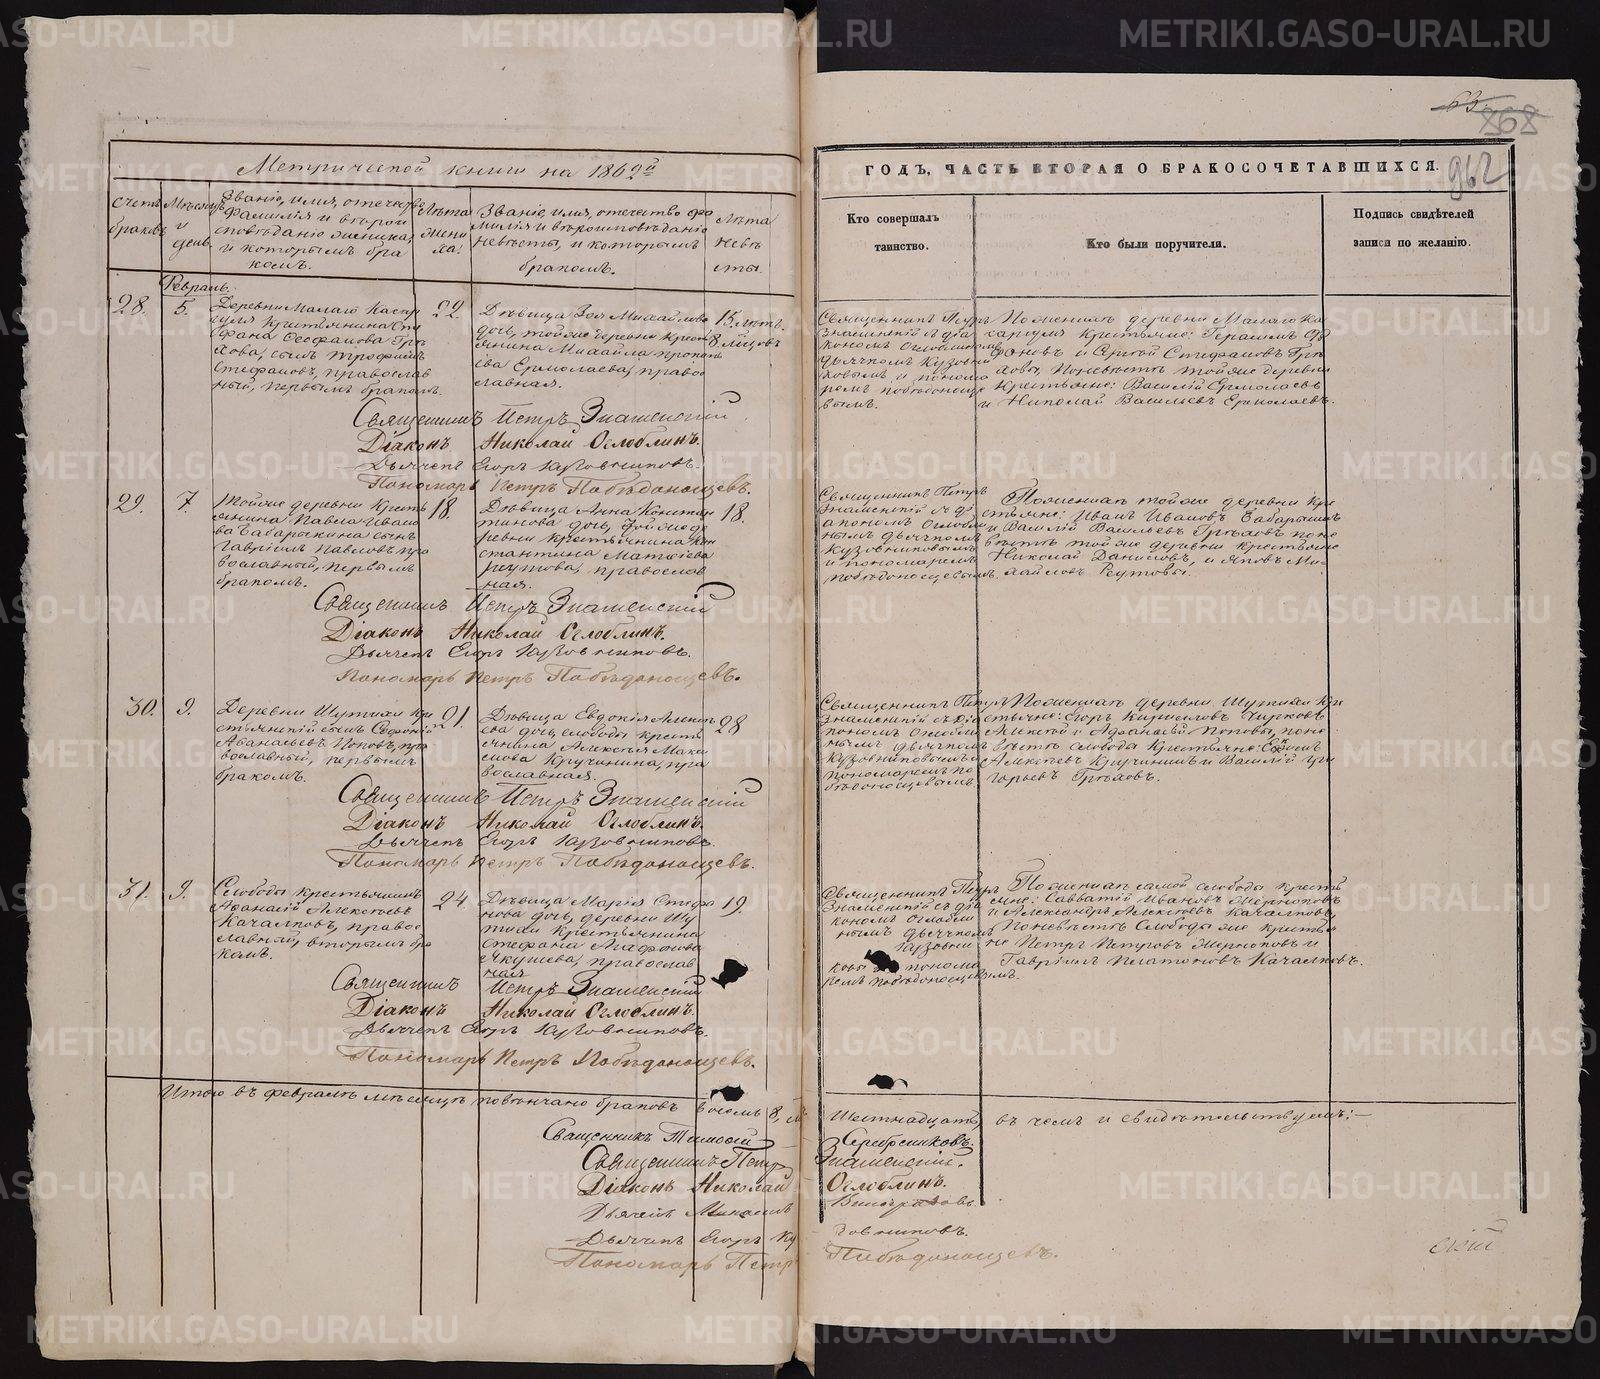 Метрической книги на 1862й
счетъ браковъ
Мѣсяцъ и день
Званіе, имя, отечество, фамилія и вѣроисповѣданіе жениха, и которымъ бракомъ.
Лѣта жениха.
Званіе, имя, отечество, фамилія и вѣроисповѣданіе невѣсты, и которымъ бракомъ.
Лѣта невѣсты.
Февраль.
28.
5.
Деревни Малаго Касар
гуля крестьянина Сте
фана Ѳеофанова Грѣ
хова, сынъ Трофимъ
Стефановъ, православ
ный, первымъ бракомъ.
22.
Дѣвица Зоя Михайлова
дочь, той же деревни крест
янина Михайла Прокопь
ева Ермолаева, право
славная.
15 лѣтъ.
8 месцовъ
Священникъ Петръ Знаменскій
Діаконъ Николай Оглоблинъ.
Дьячекъ Егоръ Кузовниковъ.
Пономарь Петръ Побѣдоносцевъ.
29.
7.
Той же деревни Кресть
янина Павла Ивано
ва Бабарыкина сынъ
Гавріилъ Павловъ, пра
вославный, первымъ
бракомъ.
18.
Дѣвица Анна Констан
тинова дочь, той же де
ревни крестьянина Кон
стантина Матвіева
Реутова, православ
ная.
18.
Священникъ Петръ Знаменскій
Діаконъ Николай Оглоблинъ.
Дьячекъ Егоръ Кузовниковъ.
Пономарь Петръ Побѣдоносцевъ.
30.
9.
Деревни Шутихи Кре
стьянскій сынъ
Аѳанасьевъ Поповъ, пра
вославный, первымъ
бракомъ.
21.
Дѣвица Евдокія Алексѣ
ева дочь, слободы кресть
янина Алексѣя Макси
мова Кручинина, пра
вославная.
28
Священникъ Петръ Знаменскій
Діаконъ Николай Оглоблинъ.
Дьячекъ Егоръ Кузовниковъ.
Пономарь Петръ Побѣдоносцевъ.
31.
9.
Слободы крестьянинъ
Аѳанасій Алексѣевъ
Качалковъ, правос
лавный, вторымъ бра
комъ.
24.
Дѣвица Марія Стефа
нова дочь, деревни Шу
тихи крестьянина
Стефана Агафонова
Якушева, православ
ная
19.
Священникъ Петръ Знаменскій
Діаконъ Николай Оглоблинъ.
Дьячекъ Егоръ Кузовниковъ.
Пономарь Петръ Побѣдоносцевъ.
Итого въ февралѣ мѣсяцѣ повѣнчано браковъ
Священникъ Тимоѳей
Священникъ Петръ
Діаконъ Николай
Дьячекъ
Дьячекъ Егоръ Ку
Пономарь Петръ
63.
868
962
ГОДЪ, ЧАСТЬ ВТОРАЯ О БРАКОСОЧЕТАВШИХСЯ.
Кто совершалъ
таинство.
Кто были поручители.
Подпись свидѣтелей
записи по желанію.
Священникъ Петръ
Знаменскій съ діа
кономъ Оглоблинымъ
дьячкомъ Кузовни
ковымъ и понома
ремъ Побѣдоносце
вымъ.
По женихѣ деревни Малаго Ка
саргуля крестьяне: Герасимъ
и Сергѣй Стефановъ Грѣ
ховы, По невѣстѣ той же деревни
Крестьяне: Василій Ермолаевъ
и Николай Васильевъ Ермолаевъ.
Священникъ Петръ
Знаменскій съ ді
акономъ Оглобли
нымъ дьячкомъ
Кузовниковымъ
и пономаремъ
Побѣдоносцевымъ.
По женихѣ той же деревни Кре
стьяне: Иванъ Ивановъ Бабарыкинъ
и Василій Васильевъ Грѣховъ, по не
вѣстѣ той же деревни Крестьяне
Николай Даниловъ, и Яковъ Ми
хайловъ Реутовы.
Священникъ Петръ
Знаменскій съ діа
кономъ Оглобли
нымъ дьячкомъ
Кузовниковымъ и
пономаремъ По
бѣдоносцевымъ.
По женихѣ деревни Шутихи Кре
стьяне: Егоръ Кириловъ
и Аѳанасій Поповы, по не
вѣстѣ слободы Крестьяне:
Алексѣевъ Кручининъ и Василій Гри
горьевъ Грѣховъ.
Священникъ Петръ
Знаменскій съ діа
кономъ Оглобли
нымъ дьячкомъ
Кузовни
ковы понома
ремъ Побѣдоносцевымъ.
По женихѣ самой слободы кресть
яне: Савватій Ивановъ
и Александръ Алексѣевъ Качалковъ,
По невѣстѣ Слободы же крестья
не Петръ Петровъ и
Гавріилъ Платоновъ Качалковъ.
Шестнадцать, въ чемъ и свидѣтельствуемъ:—
Серебрениковъ.
Знаменскій.
Оглоблинъ.
Виноградовъ
зовниковъ.
Побѣдоносцевъ.
METRIKI.GASO-URAL.RU